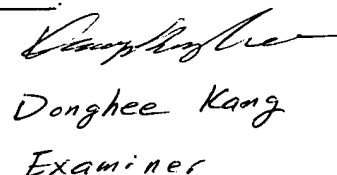 Donghee Kang
Examiner